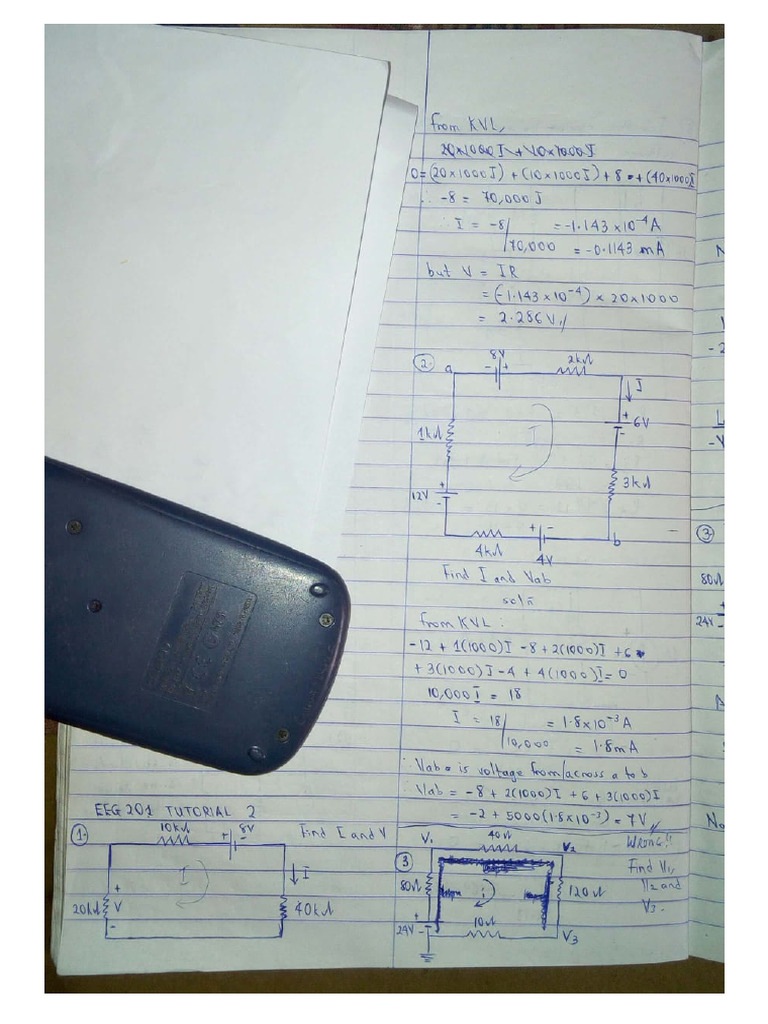 EEG 201 TUTORIAL 2
1.
10kΩ
+ 8V
Find I and V
I
I
20kΩ
+
V
-
40kΩ
from KVL,
0 = (20×1000I) + (10×1000I) + 8 + (40×1000I
∴ -8 = 70,000I
∴ I = -8/70,000 = -1.143×10⁻⁴A
= -0.1143 mA
but V = IR
= (-1.143×10⁻⁴) × 20×1000
= 2.286V//
2.
a
8V
- +
2kΩ
I
+
6V
-
1kΩ
I
3kΩ
12V
+
-
4kΩ
+ -
4V
b
Find I and Vab
soln
from KVL:
-12 + 1(1000)I - 8 + 2(1000)I + 6
+ 3(1000)I - 4 + 4(1000)I = 0
10,000I = 18
I = 18/10,000 = 1.8×10⁻³A
= 1.8mA
∴ Vab is voltage from/across a to b
∴ Vab = -8 + 2(1000)I + 6 + 3(1000)I
= -2 + 5000(1.8×10⁻³) = 7V//
Wrong!!
3
V₁
40Ω
V₂
Find V₁,
V₂ and
V₃.
80Ω
i
120Ω
+
24V -
10Ω
V₃
3
80Ω
+
24V -